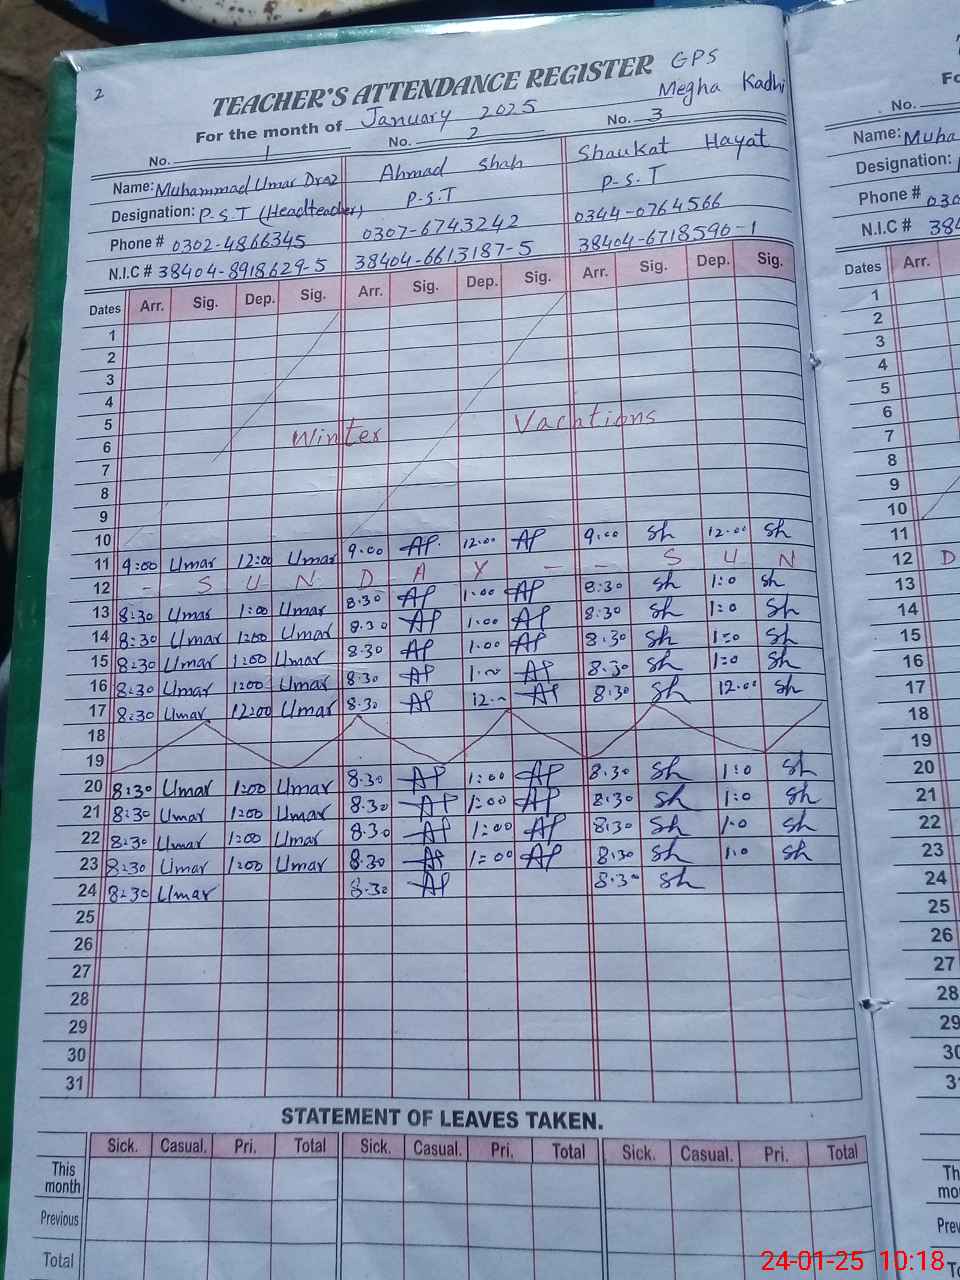 2
TEACHER'S ATTENDANCE REGISTER GPS
Megha Kadhi
For the month of January 2025
No. 1 No. 2 No. 3
Name: Muhammad Umar Draz Ahmad Shah Shaukat Hayat
Designation: P.S.T (Headteacher) P.S.T P.S.T
Phone # 0302-4866345 0307-6743242 0344-0764566
N.I.C # 38404-8918629-5 38404-6613187-5 38404-6718590-1
Dates Arr. Sig. Dep. Sig. Arr. Sig. Dep. Sig. Arr. Sig. Dep. Sig.
1
2
3
4
5
6 Winter Vacations
7
8
9
10
11 9:00 Umar 12:00 Umar 9.00 AP 12.00 AP 9.00 Sh 12.00 Sh
12 - S U N D A Y - - S U N
13 8:30 Umar 1:00 Umar 8.30 AP 1.00 AP 8:30 Sh 1:0 Sh
14 8:30 Umar 1:00 Umar 8.30 AP 1.00 AP 8:30 Sh 1:0 Sh
15 8:30 Umar 1:00 Umar 8.30 AP 1.00 AP 8:30 Sh 1:0 Sh
16 8:30 Umar 1:00 Umar 8.30 AP 1.00 AP 8:30 Sh 1:0 Sh
17 8:30 Umar 12:00 Umar 8.30 AP 12.00 AP 8:30 Sh 12.00 Sh
18
19
20 8:30 Umar 1:00 Umar 8.30 AP 1:00 AP 8.30 Sh 1:0 Sh
21 8:30 Umar 1:00 Umar 8.30 AP 1:00 AP 8.30 Sh 1:0 Sh
22 8:30 Umar 1:00 Umar 8.30 AP 1:00 AP 8:30 Sh 1.0 Sh
23 8:30 Umar 1:00 Umar 8.30 AP 1:00 AP 8.30 Sh 1.0 Sh
24 8:30 Umar 8.30 AP 8.30 Sh
25
26
27
28
29
30
31
STATEMENT OF LEAVES TAKEN.
Sick. Casual. Pri. Total Sick. Casual. Pri. Total Sick. Casual. Pri. Total
This month
Previous
Total
No.
Name: Muha
Designation:
Phone # 030
N.I.C # 384
Dates Arr.
1
2
3
4
5
6
7
8
9
10
11
12 D
13
14
15
16
17
18
19
20
21
22
23
24
25
26
27
28
29
24-01-25 10:18